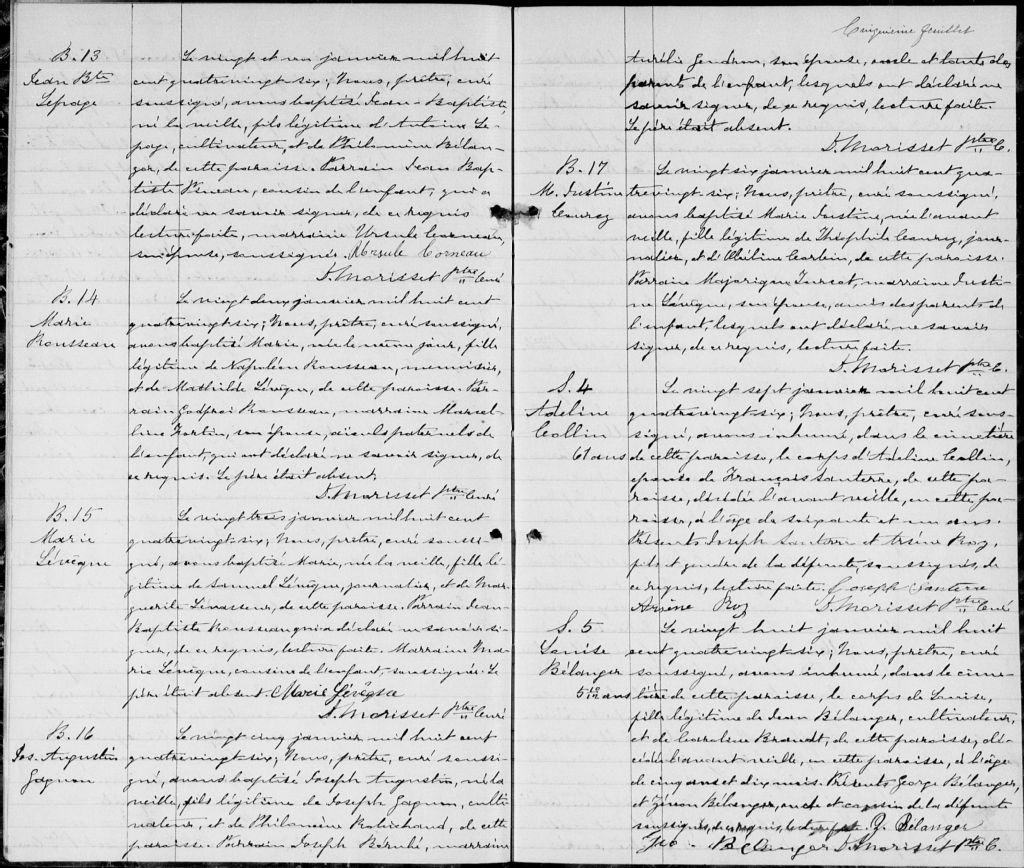 B. 13
Jean Bte
Lepage
Le vingt et un janvier mil huit
cent quatrevingt-six; Nous, prêtre, curé
soussigné, avons baptisé Jean-Baptiste,
né la veille, fils légitime d'Antoine Le-
page, cultivateur, et de Philomène Bélan-
ger, de cette paroisse. Parrain Jean Bap-
tiste Pineau, cousin de l'enfant, qui a
déclaré ne savoir signer, de ce requis
lecture faite, marraine Ursule Corneau,
son épouse, soussignée. Ursule Corneau
D. Morisset ptre Curé
B. 14
Marie
Rousseau
Le vingt deux janvier mil huit cent
quatrevingt-six; Nous, prêtre, curé soussigné,
avons baptisé Marie, née le même jour, fille
légitime de Napoléon Rousseau, menuisier,
et de Mathilde Lévêque, de cette paroisse. Par-
rain Godfroi Rousseau, marraine Marcel-
line Fortin, son épouse, aïeuls paternels de
l'enfant, qui ont déclaré ne savoir signer, de
ce requis. Le père était absent.
D. Morisset ptre Curé
B. 15
Marie
Lévêque
Le vingt trois janvier mil huit cent
quatrevingt-six; Nous, prêtre, curé soussi-
gné, avons baptisé Marie, née la veille, fille lé-
gitime de Samuel Lévêque, journalier, et de Mar-
guerite Levasseur, de cette paroisse. Parrain Jean-
Baptiste Rousseau qui a déclaré ne savoir si-
gner, de ce requis, lecture faite. Marraine Ma-
rie Lévêque, cousine de l'enfant, soussignée. Le
père était absent. Marie Lévêque
D. Morisset ptre Curé
B. 16
Jos. Augustin
Gagnon
Le vingt cinq janvier mil huit cent
quatrevingt-six; Nous, prêtre, curé soussi-
gné, avons baptisé Joseph Augustin, né la
veille, fils légitime de Joseph Gagnon, culti-
vateur, et de Philomène Robichaud, de cette
paroisse. Parrain Joseph Bérubé, marraine
Cinquième feuillet
Aurélie Gendron, son épouse, oncle et tante des
parents de l'enfant, lesquels ont déclaré ne
savoir signer, de ce requis, lecture faite.
Le père était absent.
D. Morisset ptre C.
B. 17
M. Justine
Le vingt six janvier mil huit cent qua-
trevingt-six; Nous, prêtre, curé soussigné,
avons baptisé Marie Justine, née l'avant
veille, fille légitime de Théophile, jour-
nalier, et d', de cette paroisse.
Parrain Majorique Turcot, marraine Justi-
ne Lévêque, son épouse, amis des parents de
l'enfant, lesquels ont déclaré ne savoir
signer, de ce requis, lecture faite.
D. Morisset ptre C.
S. 4
Adeline
Collin
61 ans
Le vingt sept janvier mil huit cent
quatrevingt-six; Nous, prêtre, curé sous-
signé, avons inhumé, dans le cimetière
de cette paroisse, le corps d'Adeline Collin,
épouse de François Santerre, de cette pa-
roisse, décédée l'avant veille, en cette pa-
roisse, à l'âge de soixante et un ans.
Présents Joseph Santerre et Arsène Roy,
fils et gendre de la défunte, soussignés, de
ce requis, lecture faite. Joseph Santerre
Arsène Roy D. Morisset ptre Curé
S. 5
Louise
Bélanger
5 10/12 ans
Le vingt huit janvier mil huit
cent quatrevingt-six; Nous, prêtre, curé
soussigné, avons inhumé, dans le cime-
tière de cette paroisse, le corps de Louise,
fille légitime de Jean Bélanger, cultivateur,
et de Caroline Brandt, de cette paroisse, dé-
cédée l'avant veille, en cette paroisse, à l'âge
de cinq ans et dix mois. Présents George Bélanger,
et Bélanger, oncle et cousin de la défunte
soussignés, de ce requis, lecture faite. Bélanger
Geo. Belanger D. Morisset ptre C.